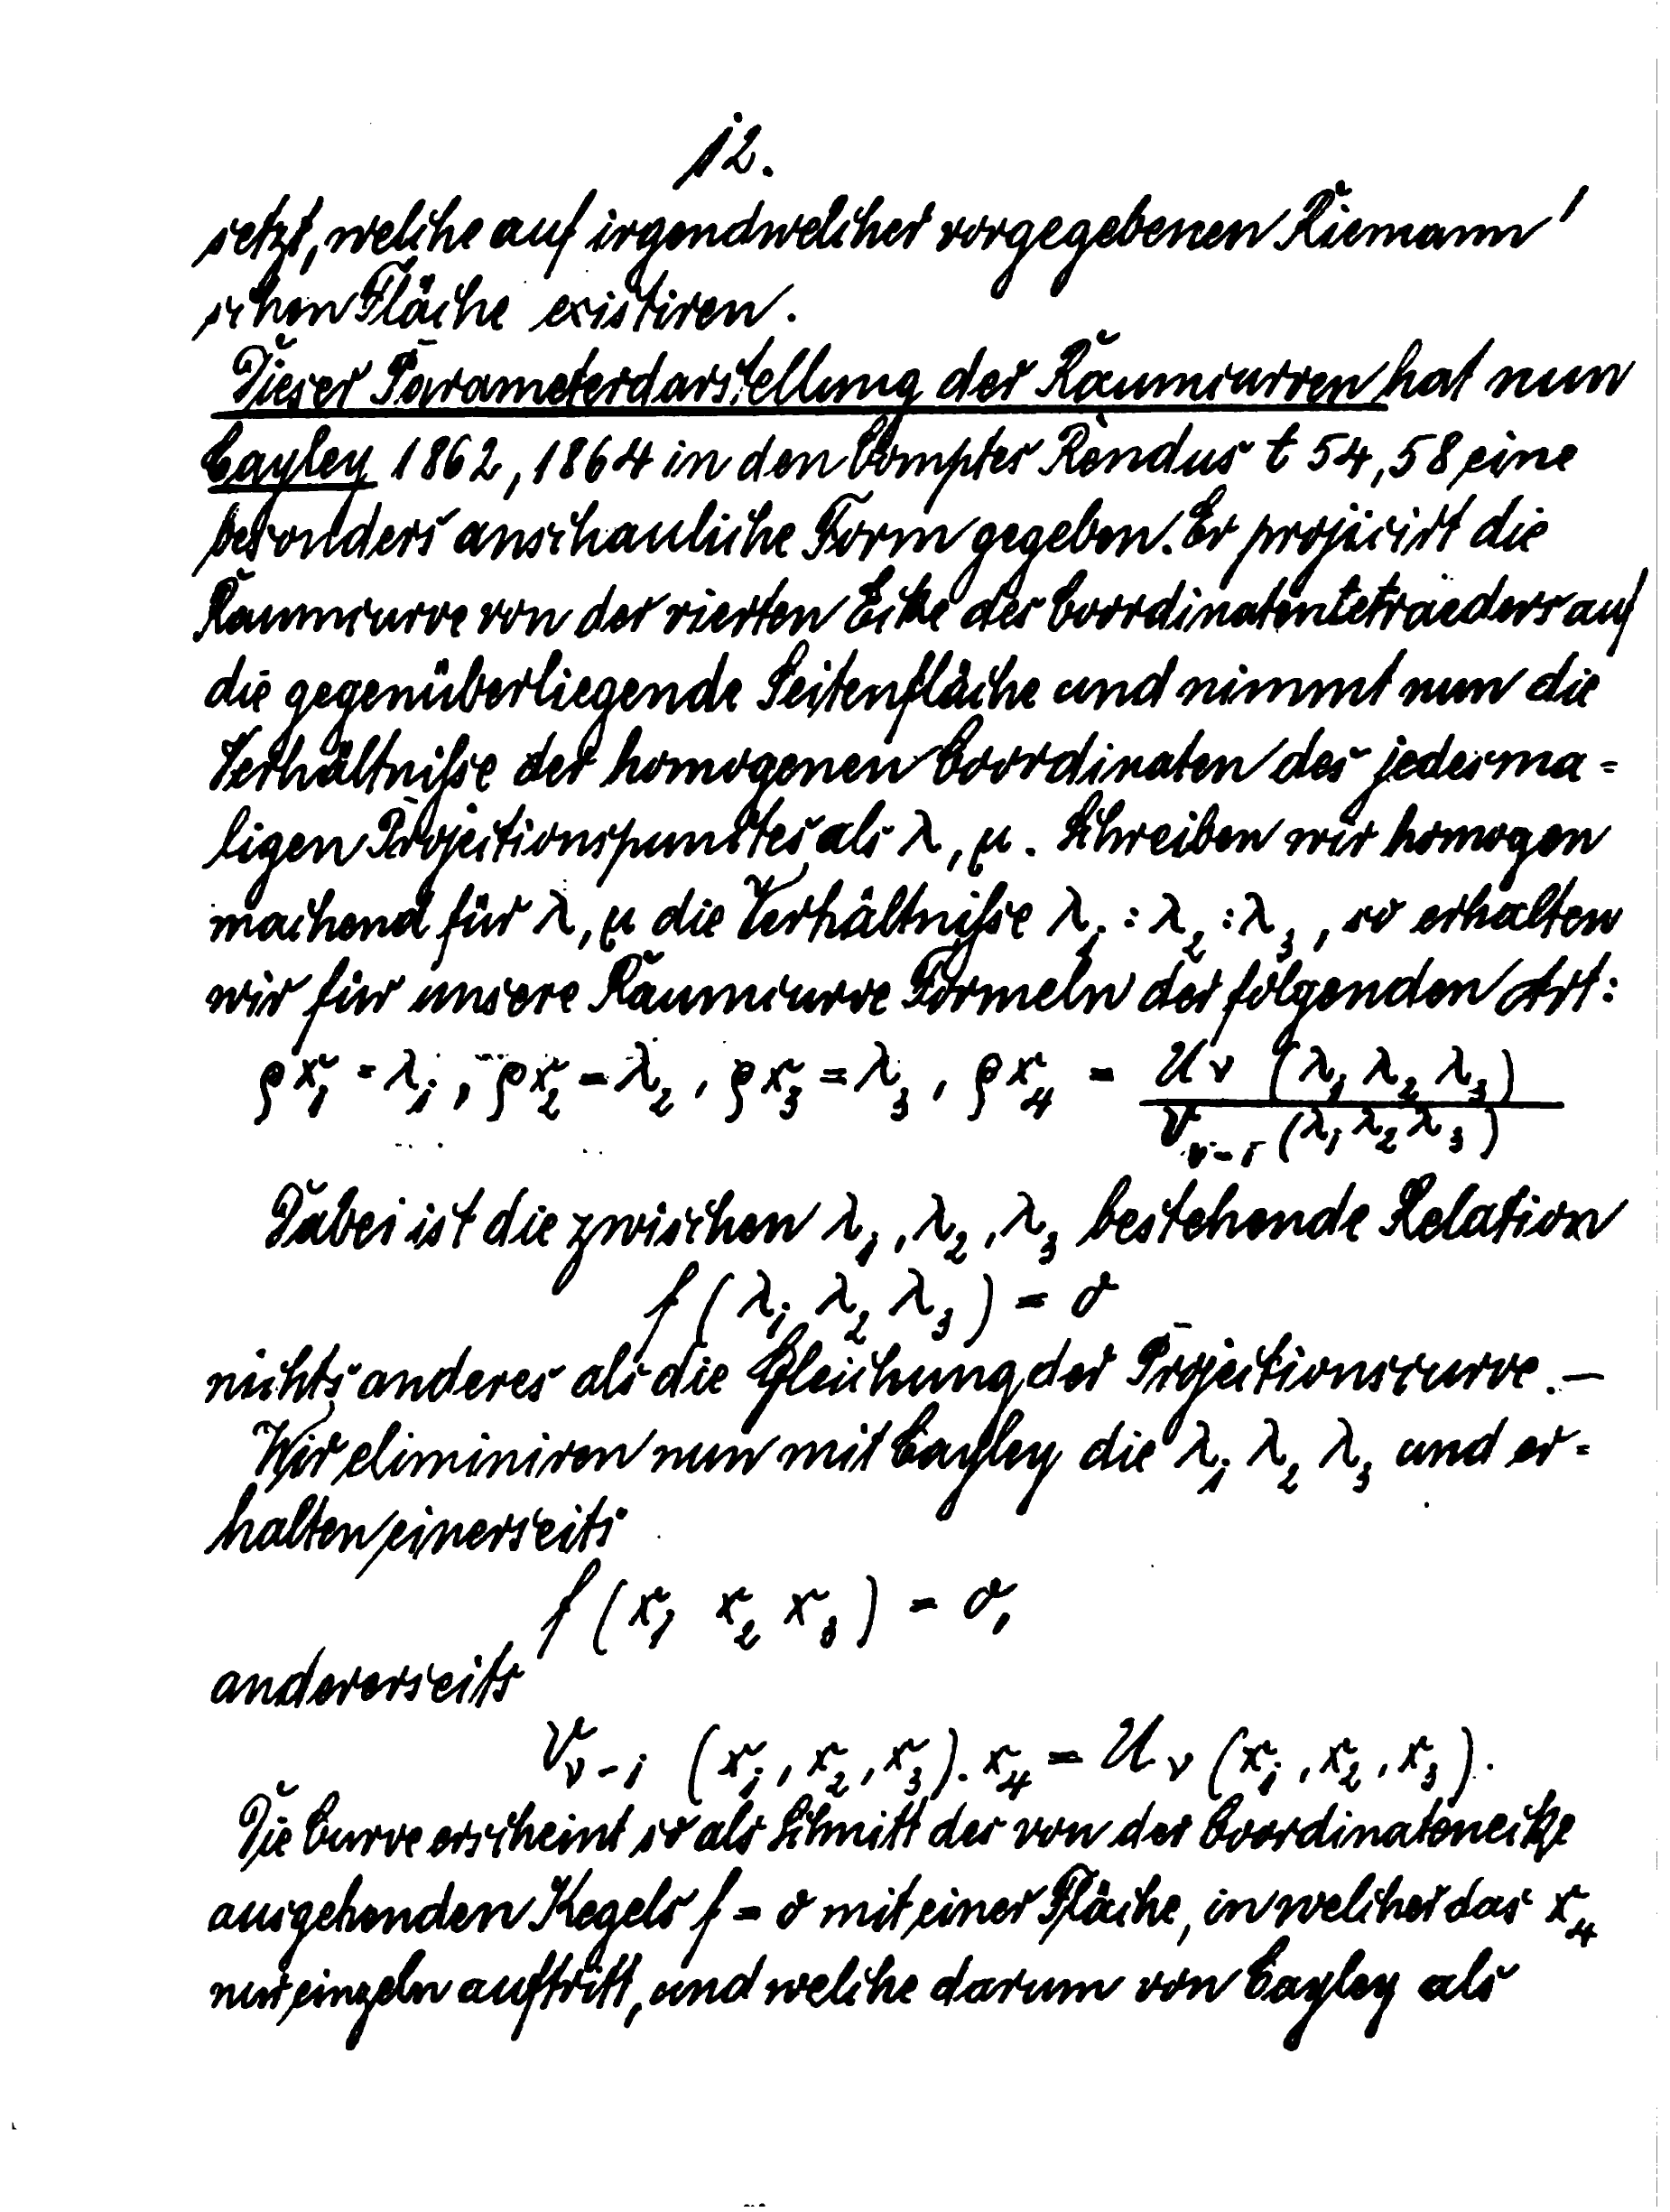 12.
setzt, welche auf irgendwelcher vorgegebenen Riemann'
schen Fläche existiren.
Dieser Parameterdarstellung der Raumcurven hat nun
Cayley 1862, 1864 in den Comptes Rendus t 54, 58 eine
besonders anschauliche Form gegeben. Er projicirt die
Raumcurve von der vierten Ecke des Coordinatentetraeders auf
die gegenüberliegende Seitenfläche und nimmt nun die
Verhältnisse der homogenen Coordinaten des jedesma-
ligen Projectionspunctes als λ, μ. Schreiben wir homogen
machend für λ, μ die Verhältnisse λ₁ : λ₂ : λ₃, so erhalten
wir für unsere Raumcurve Formeln der folgenden Art:
ρx₁ = λ₁, ρx₂ = λ₂, ρx₃ = λ₃, ρx₄ = U_ν (λ₁ λ₂ λ₃) / V_ν₋₁ (λ₁ λ₂ λ₃)
Dabei ist die zwischen λ₁, λ₂, λ₃ bestehende Relation
f (λ₁ λ₂ λ₃) = 0
nichts anderes als die Gleichung der Projectionscurve. —
Wir eliminiren nun mit Cayley die λ₁ λ₂ λ₃ und er-
halten einerseits
f (x₁ x₂ x₃) = 0,
andererseits
V_ν₋₁ (x₁, x₂, x₃). x₄ = U_ν (x₁, x₂, x₃).
Die Curve erscheint so als Schnitt des von der Coordinatenecke
ausgehenden Kegels f = 0 mit einer Fläche, in welcher das x₄
nur einzeln auftritt, und welche darum von Cayley als